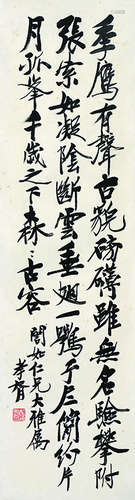 季鷹有聲古貌磅礴雖無名驗攀附
張索如凝陰斷雲垂翅一鶚于三简約片
月孤峯千歲之下森〻古容
闇如仁兄大雅属
孝胥